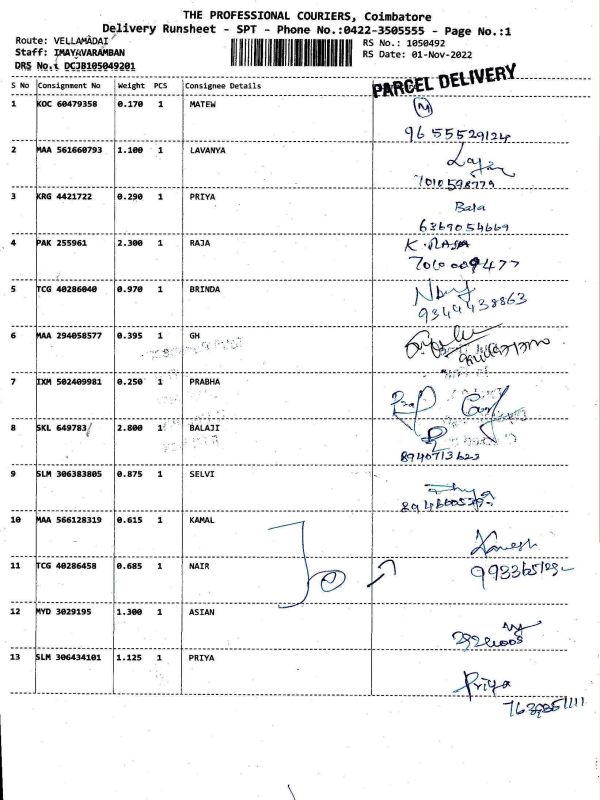 THE PROFESSIONAL COURIERS, Coimbatore
Delivery Runsheet - SPT - Phone No.:0422-3505555 - Page No.:1
Route: VELLAMADAI
RS No.: 1050492
Staff: IMAYAVARAMBAN
RS Date: 01-Nov-2022
DRS No.: DCJB105049201
PARCEL DELIVERY
S No Consignment No Weight PCS Consignee Details
1 KOC 60479358 0.170 1 MATEW M
96 55529124
2 MAA 561660793 1.100 1 LAVANYA
7010598779
3 KRG 4421722 0.290 1 PRIYA Bala
6369054669
4 PAK 255961 2.300 1 RAJA K. RAJA
7010009477
5 TCG 40286040 0.970 1 BRINDA
9344438863
6 MAA 294058577 0.395 1 GH
7 IXM 502409981 0.250 1 PRABHA
8 SKL 649783 2.800 1 BALAJI
8940713623
9 SLM 306383805 0.875 1 SELVI
10 MAA 566128319 0.615 1 KAMAL
11 TCG 40286458 0.685 1 NAIR
12 MYD 3029195 1.300 1 ASIAN
13 SLM 306434101 1.125 1 PRIYA Priya